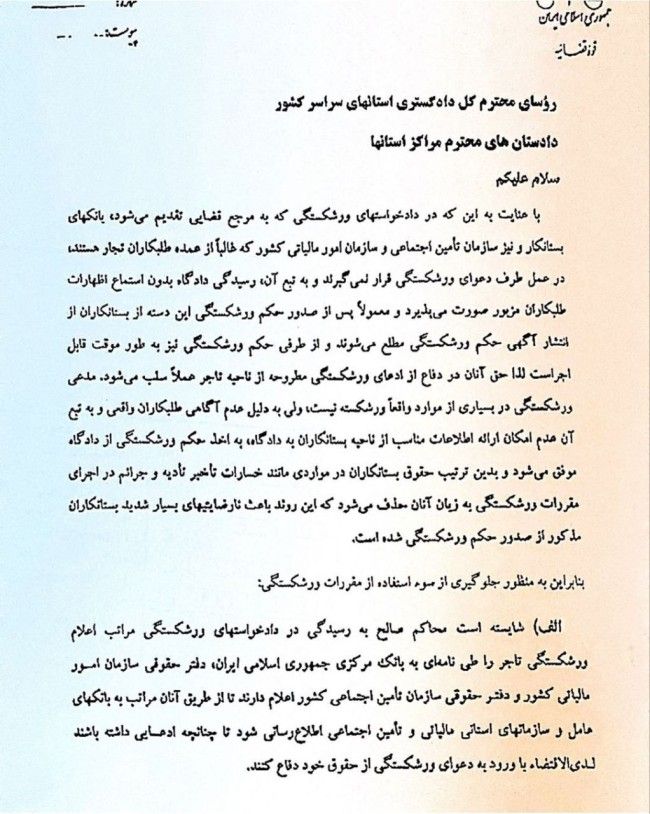 جمهوری اسلامی ایران
قوه قضائیه
شماره:
پیوست:
رؤسای محترم کل دادگستری استانهای سراسر کشور
دادستان های محترم مراکز استانها
سلام علیکم
با عنایت به این که در دادخواستهای ورشکستگی که به مرجع قضایی تقدیم می‌شود، بانکهای
بستانکار و نیز سازمان تأمین اجتماعی و سازمان امور مالیاتی کشور که غالباً از عمده طلبکاران تجار هستند،
در عمل طرف دعوای ورشکستگی قرار نمی‌گیرند و به تبع آن، رسیدگی دادگاه بدون استماع اظهارات
طلبکاران مزبور صورت می‌پذیرد و معمولاً پس از صدور حکم ورشکستگی این دسته از بستانکاران از
انتشار آگهی حکم ورشکستگی مطلع می‌شوند و از طرفی حکم ورشکستگی نیز به طور موقت قابل
اجراست لذا حق آنان در دفاع از ادعای ورشکستگی مطروحه از ناحیه تاجر عملاً سلب می‌شود. مدعی
ورشکستگی در بسیاری از موارد واقعاً ورشکسته نیست، ولی به دلیل عدم آگاهی طلبکاران واقعی و به تبع
آن عدم امکان ارائه اطلاعات مناسب از ناحیه بستانکاران به دادگاه، به اخذ حکم ورشکستگی از دادگاه
موفق می‌شود و بدین ترتیب حقوق بستانکاران در مواردی مانند خسارات تأخیر تأدیه و جرائم در اجرای
مقررات ورشکستگی به زیان آنان حذف می‌شود که این روند باعث نارضایتیهای بسیار شدید بستانکاران
مذکور از صدور حکم ورشکستگی شده است.
بنابراین به منظور جلوگیری از سوء استفاده از مقررات ورشکستگی:
الف) شایسته است محاکم صالح به رسیدگی در دادخواستهای ورشکستگی مراتب اعلام
ورشکستگی تاجر را طی نامه‌ای به بانک مرکزی جمهوری اسلامی ایران، دفتر حقوقی سازمان امور
مالیاتی کشور و دفتر حقوقی سازمان تأمین اجتماعی کشور اعلام دارند تا از طریق آنان مراتب به بانکهای
عامل و سازمانهای استانی مالیاتی و تأمین اجتماعی اطلاع‌رسانی شود تا چنانچه ادعایی داشته باشند
لدی‌الاقتضاء با ورود به دعوای ورشکستگی از حقوق خود دفاع کنند.